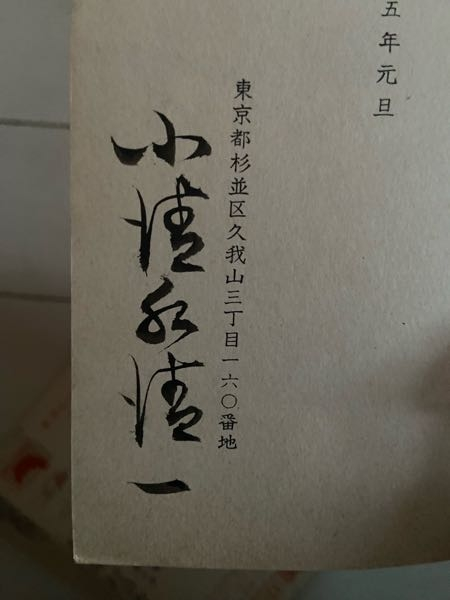 五年元旦
東京都杉並区久我山三丁目一六〇番地
小清水清一